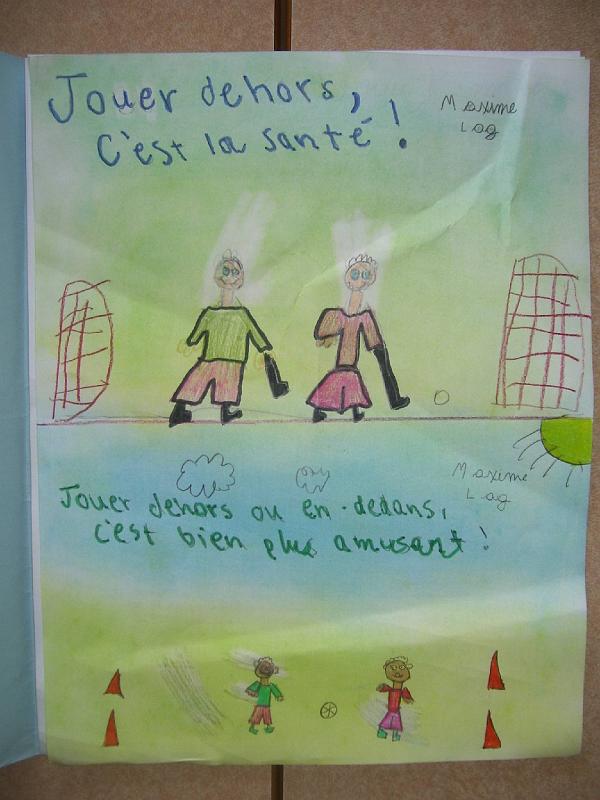 Jouer dehors,
C'est la santé !
Maxime
Lag
Maxime
Lag
Jouer dehors ou en-dedans,
c'est bien plus amusant !